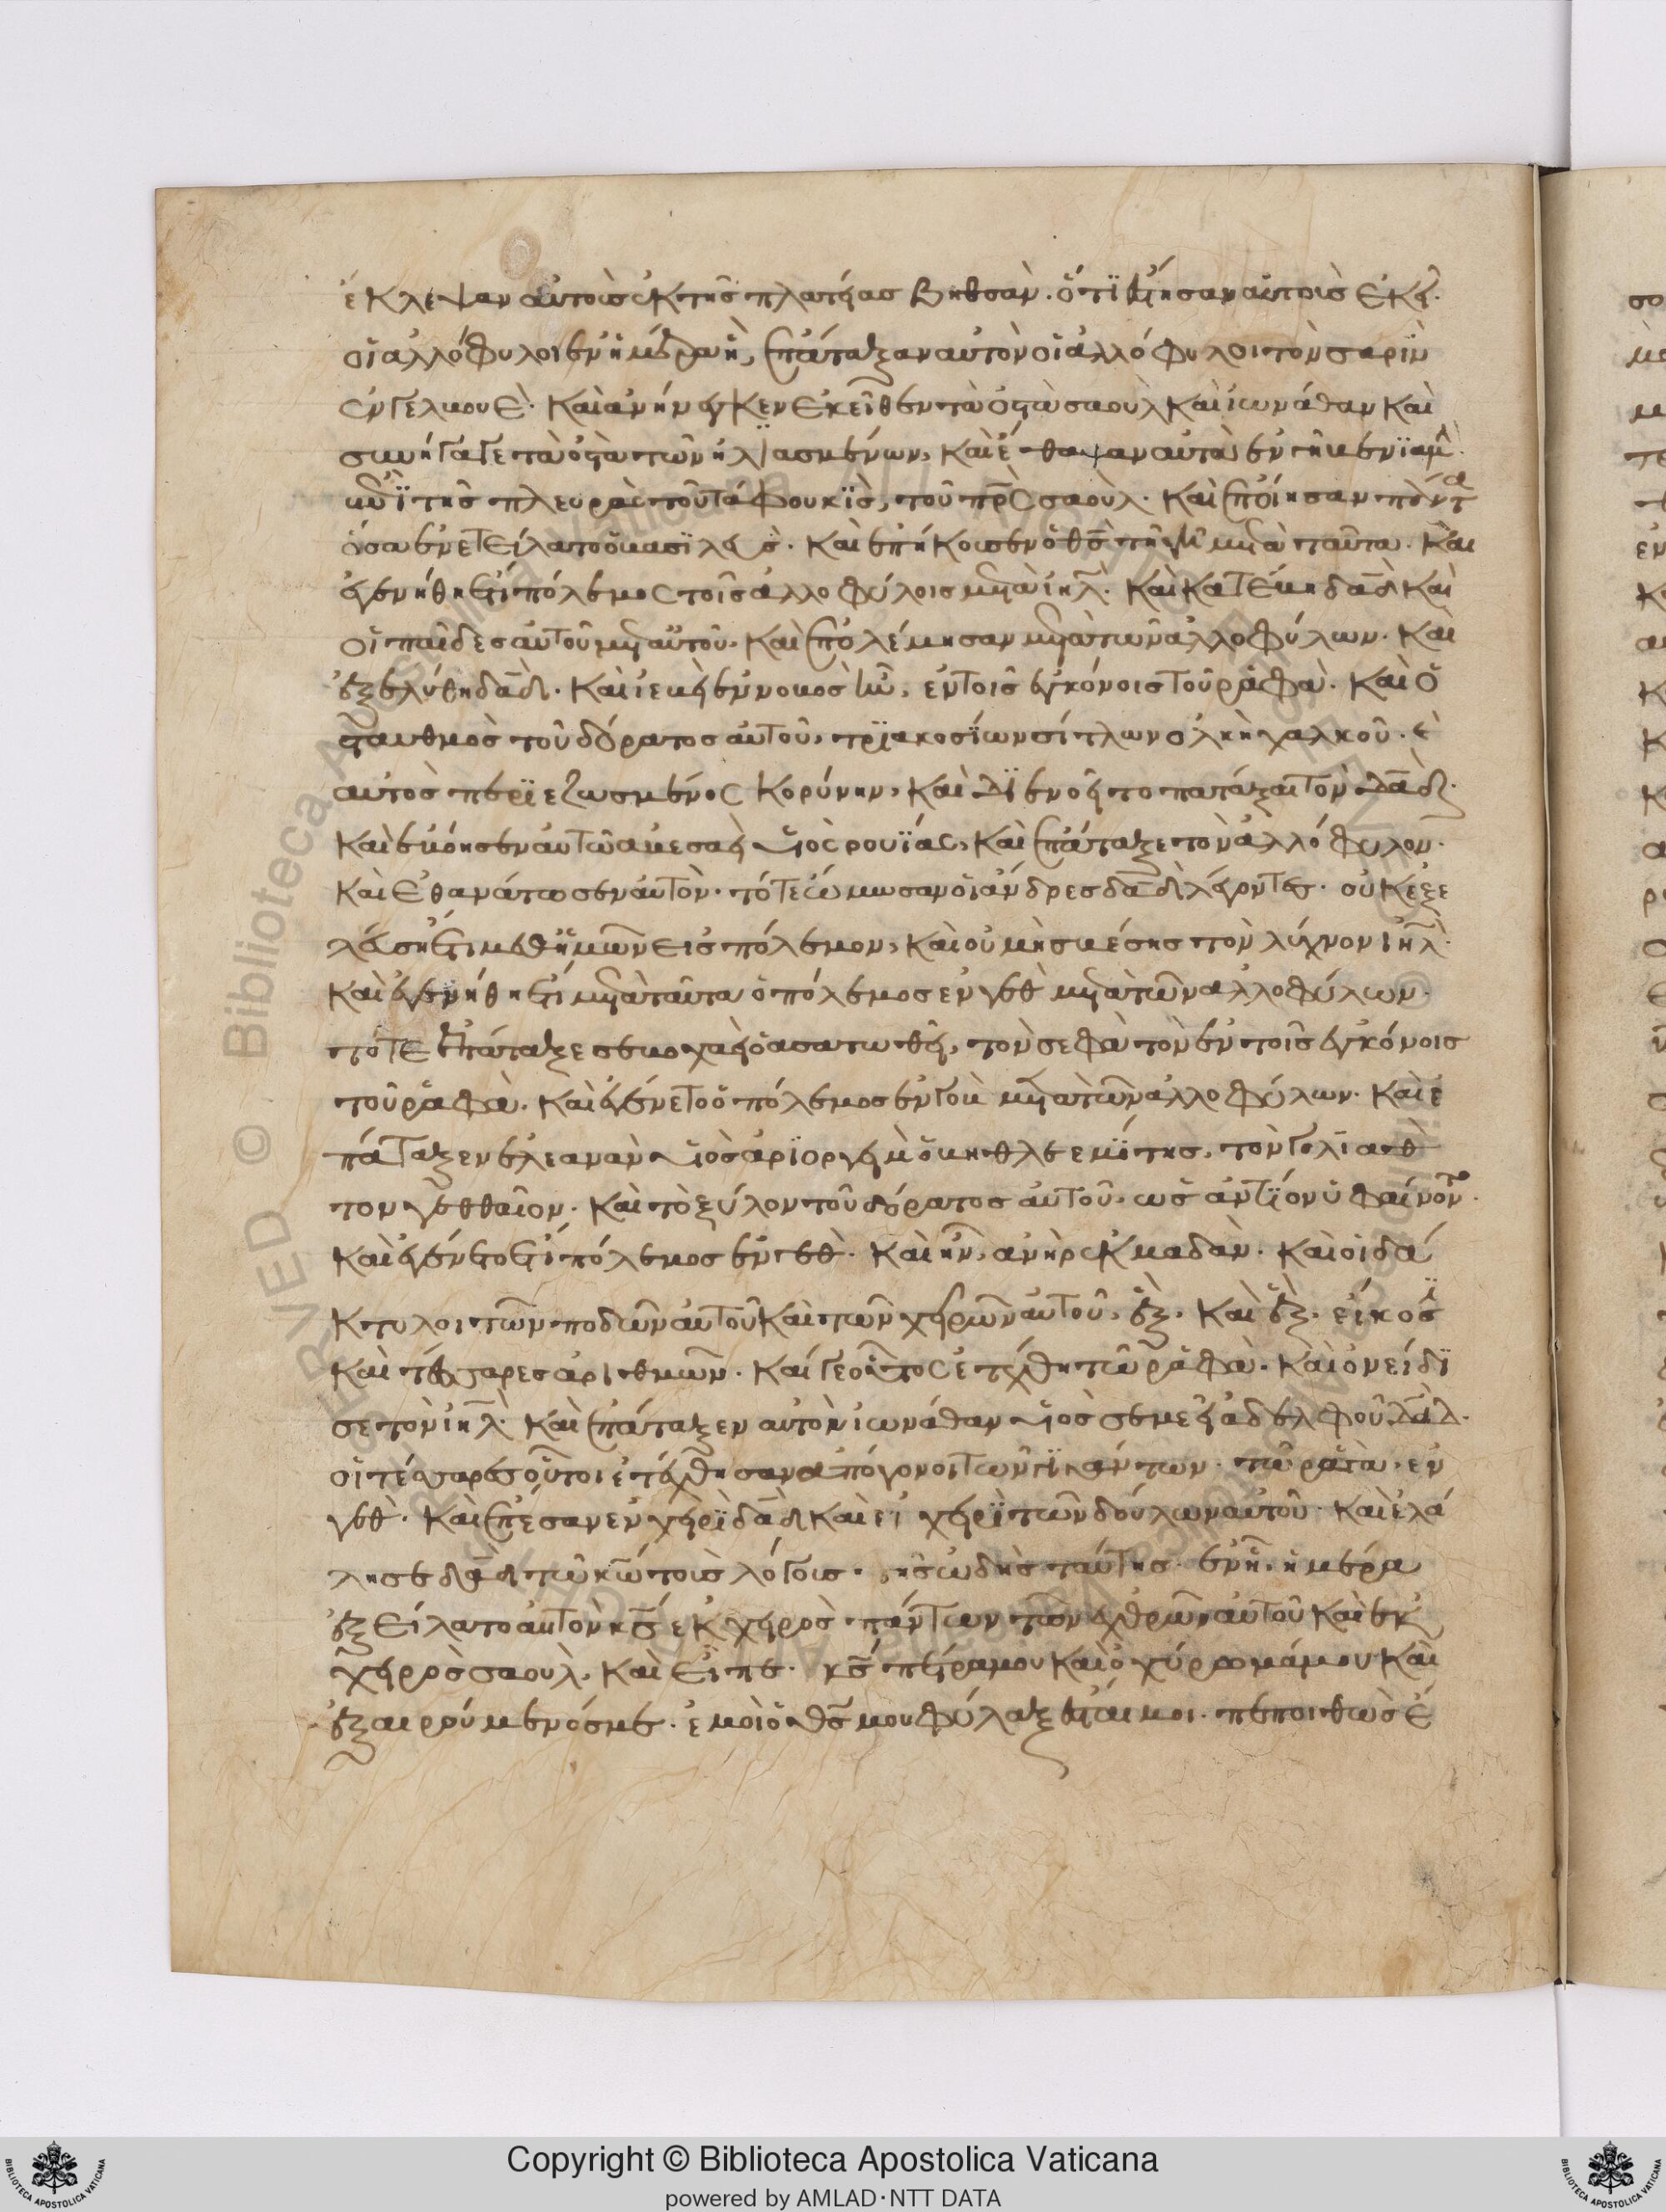 ἔκλεψαν αὐτοὺς ἐκ τῆς πλατείας βηθσάν. ὅτι ἔστησαν αὐτοὺς ἐκεῖ
οἱ ἀλλόφυλοι ἐν ἡμέρα ἧ, ἐπάταξαν αὐτὸν οἱ ἀλλόφυλοι τὸν σαοὺλ
ἐν γελβουέ. καὶ ἀνήνεγκεν ἐκεῖθεν τὰ ὀστᾶ σαοὺλ καὶ ἰωνάθαν καὶ
συνήγαγε τὰ ὀστᾶ τῶν ἡλιασμένων, καὶ ἔθαψαν αὐτὰ ἐν γῆ βενϊαμὶν
τῆς πλευρᾶς τοῦ τάφου κὶς, τοῦ πρς σαούλ. καὶ ἐποίησαν πάντα
ὅσα ἐνετείλατο ὁ βασϊλεύς. καὶ ἐπήκουσεν ὁ θς τῆ γῆ μετὰ ταῦτα. καὶ
ἐγενήθη ἔτι πόλεμος τοῖς ἀλλοφύλοις μετὰ ιηλ. καὶ κατέβη δαδ καὶ
οἱ παῖδες αὐτοῦ μετ αὐτοῦ. καὶ ἐπολέμησαν μετὰ τῶν ἀλλοφύλων. καὶ
ἐξελύθη δαδ. καὶ ἰεσβὶ ἐν νοβ ὃς ἦν, ἐν τοῖς ἐκγόνοις τοῦ ῥαφά. καὶ ὁ
σταθμὸς τοῦ δόρατος αὐτοῦ, τριακοσίων σίκλων ὁλκὴ χαλκοῦ. καὶ
αὐτὸς περιεζωσμένος κορύνην, καὶ διενοεῖτο πατάξαι τὸν δαδ.
καὶ ἐβόησεν αὐτῶ ἀβεσσὰ υἱὸς σαρουΐας, καὶ ἐπάταξε τὸν ἀλλόφυλον.
καὶ ἐθανάτωσεν αὐτόν. τότε ὤμωσαν οἱ ἄνδρες δαδ λέγοντες. οὐκ ἐξε
λεύση ἔτι μεθ ἡμῶν εἰς πόλεμον, καὶ οὐ μὴ σβέσης τὸν λύχνον ιηλ.
καὶ ἐγενήθη ἔτι μετὰ ταῦτα ὁ πόλεμος ἐν γὲθ μετὰ τῶν ἀλλοφύλων.
τότε ἐπάταξε σεβοχὰ ὁ ἀσατωθεί, τὸν σεφὰ τὸν ἐν τοῖς ἐκγόνοις
τοῦ ῥαφά. καὶ ἐγένετο ὁ πόλεμος ἐν γὸβ μετὰ τῶν ἀλλοφύλων. καὶ ἐ
πάταξεν ἐλεανὰν υἱὸς ἀριοργεὶμ ὁ βηθλεεμίτης, τὸν γολιὰθ
τον γεθθαῖον. καὶ τὸ ξύλον τοῦ δόρατος αὐτοῦ, ὡς ἀντίον ὑφαινόντων.
καὶ ἐγένετο ἔτι πόλεμος ἐν γέθ. καὶ ἦν, ἀνὴρ ἐκ μαδάν. καὶ οἱ δά
κτυλοι τῶν ποδῶν αὐτοῦ καὶ τῶν χειρῶν αὐτοῦ, ἓξ. καὶ ἓξ. εἴκοσι
καὶ τέσσαρες ἀριθμῶν. καί γε οὗτος ἐτέχθη τῶ ῥαφά. καὶ ὀνείδι
σε τὸν ιηλ. καὶ ἐπάταξεν αὐτὸν ἰωνάθαν υἱὸς σεμεεὶ ἀδελφοῦ δαδ.
οἱ τέσσαρες οὗτοι ἐτέχθησαν ἀπόγονοι τῶν γιγάντων. τῶ ῥαφὰ. ἐν
γέθ. καὶ ἔπεσαν ἐν χειρὶ δαδ καὶ ἐν χειρὶ τῶν δούλων αὐτοῦ. καὶ ἐλά
λησε δαδ τῶ κῶ τοὺς λόγους τῆς ὠδῆς ταύτης. ἐν ἧ ἡμέρα
ἐξείλατο αὐτὸν κς ἐκ χειρὸς πάντων τῶν ἐχθρῶν αὐτοῦ καὶ ἐκ
χειρὸς σαούλ. καὶ εἶπε. κς πέτρα μου καὶ ὀχύρωμά μου καὶ
ἐξαιρούμενός με. ἐμοὶ ὁ θς μου φύλαξ ἔσται μοι. πεποιθὼς ἔ